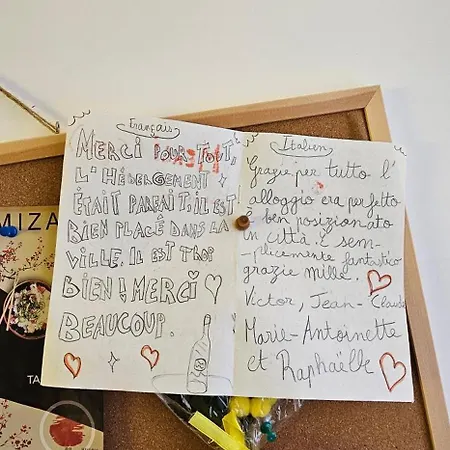 Français
MERCI POUR TOUT,
L'HÉBERGEMENT
ÉTAIT PARFAIT, IL EST
BIEN PLACÉ DANS LA
VILLE. IL EST TROP
BIEN! MERCI
BEAUCOUP.
Italien
Grazie per tutto l'
alloggio era perfetto
è ben posizionato
in città. È sem-
-plicemente fantastico
grazie mille.
Victor, Jean-Claude
Marie-Antoinette
et Raphaëlle
MIZA
TA